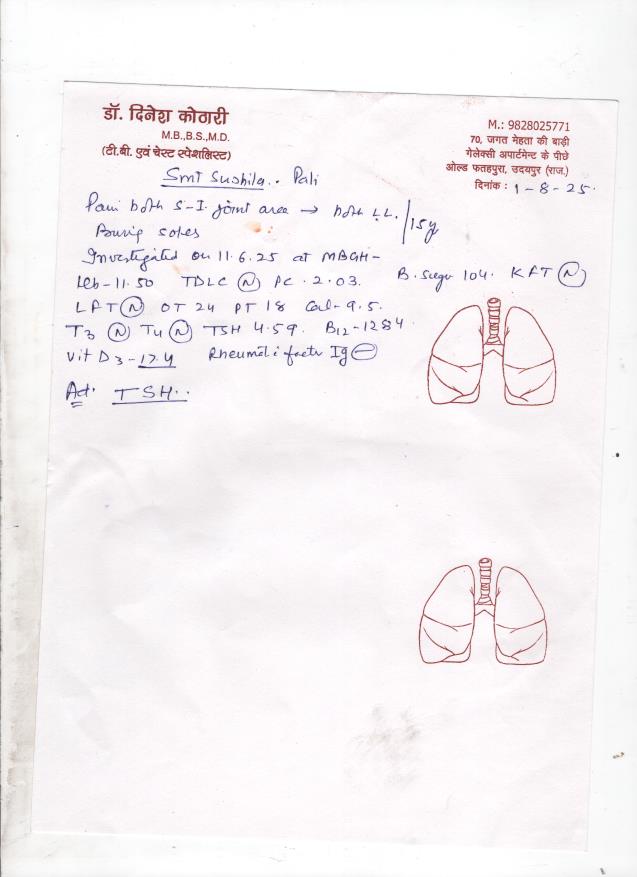 डॉ. दिनेश कोठारी
M.B.,B.S.,M.D.
(टी.बी. एवं चेस्ट स्पेशलिस्ट)
M.: 9828025771
70, जगत मेहता की बाड़ी
गेलेक्सी अपार्टमेन्ट के पीछे
ओल्ड फतहपुरा, उदयपुर (राज.)
दिनांक : 1-8-25.
Smt Sushila.. Pali
Pain both S-I. joint area → both L.L. / 15y
soles
Investigated on 11.6.25 at MBGH-
Hb-11.50 TDLC (N) PC.2.03. B.Sugar 104. KFT (N)
LFT (N) OT 24 PT 18 Cal-9.5.
T3 (N) T4 (N) TSH 4.59. B12-1284.
Vit D3-17.4 factor Ig (-)
Ad. TSH..